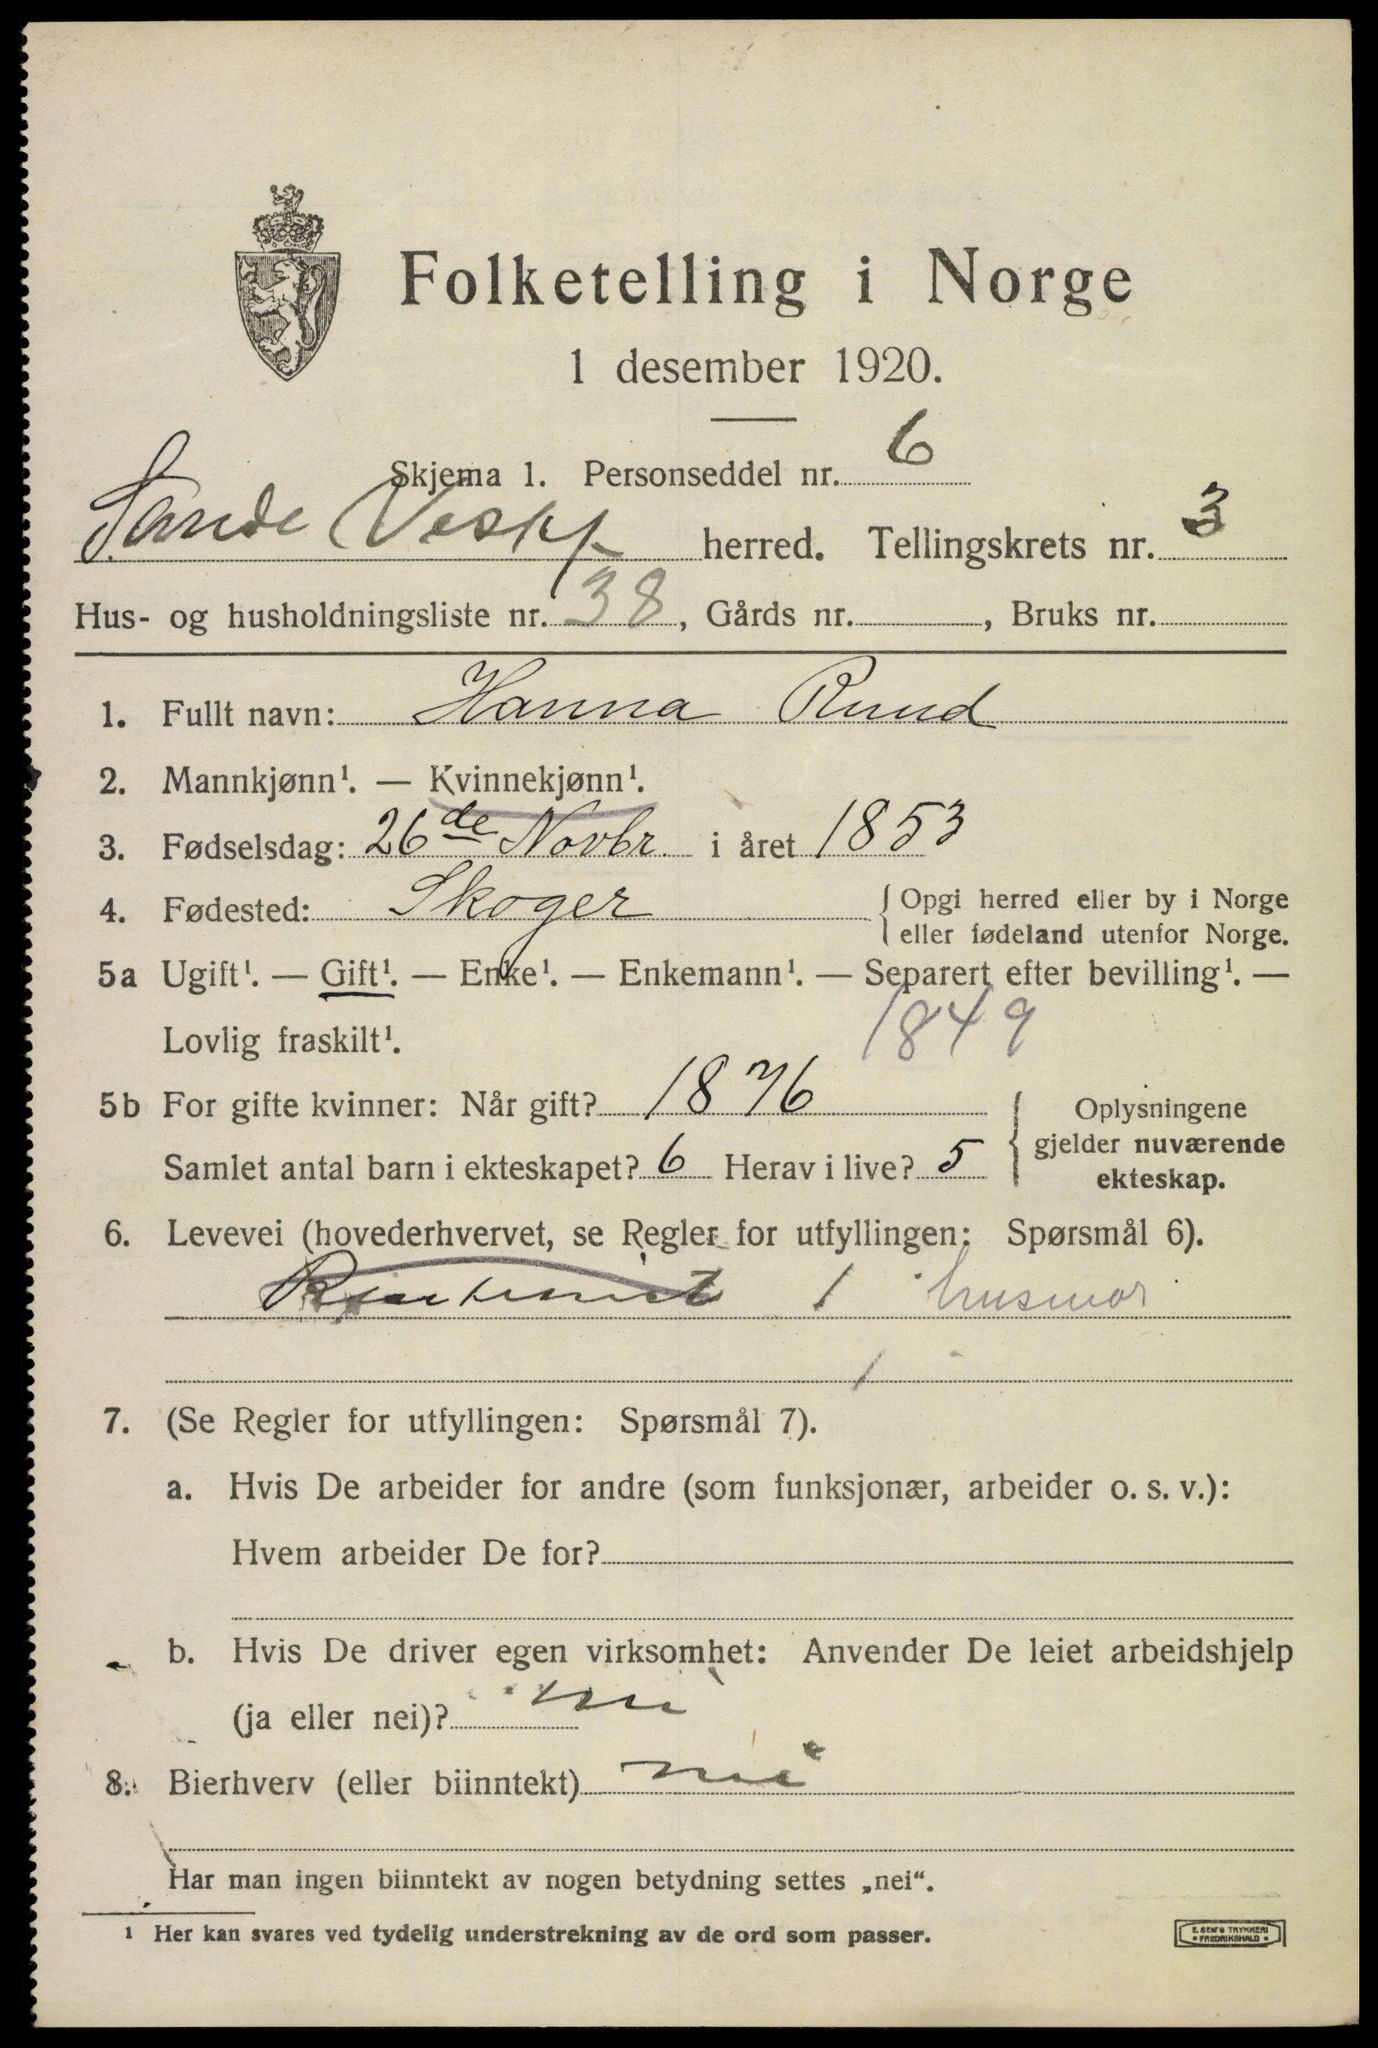 Folketelling i Norge
1 desember 1920.
Skjema 1. Personseddel nr. 6
Sande Vestf herred. Tellingskrets nr. 3
Hus- og husholdningsliste nr. 38, Gårds nr. , Bruks nr.
1. Fullt navn: Hanna Ruud
2. Mannkjønn¹. — Kvinnekjønn¹.
3. Fødselsdag: 26de Novbr. i året 1853
4. Fødested: Skoger { Opgi herred eller by i Norge
eller fødeland utenfor Norge.
5a Ugift¹. — Gift¹. — Enke¹. — Enkemann¹. — Separert efter bevilling¹. —
Lovlig fraskilt¹. 1849
5b For gifte kvinner: Når gift? 1876
Samlet antal barn i ekteskapet? 6 Herav i live? 5 { Oplysningene
gjelder nuværende
ekteskap.
6. Levevei (hovederhvervet, se Regler for utfyllingen: Spørsmål 6).
/ husmor
/
7. (Se Regler for utfyllingen: Spørsmål 7).
a. Hvis De arbeider for andre (som funksjonær, arbeider o. s. v.):
Hvem arbeider De for?
b. Hvis De driver egen virksomhet: Anvender De leiet arbeidshjelp
(ja eller nei)? nei
8. Bierhverv (eller biinntekt) nei
Har man ingen biinntekt av nogen betydning settes „nei“.
¹ Her kan svares ved tydelig understrekning av de ord som passer.
E. SEM'S TRYKKERI
• FREDRIKSHALD •